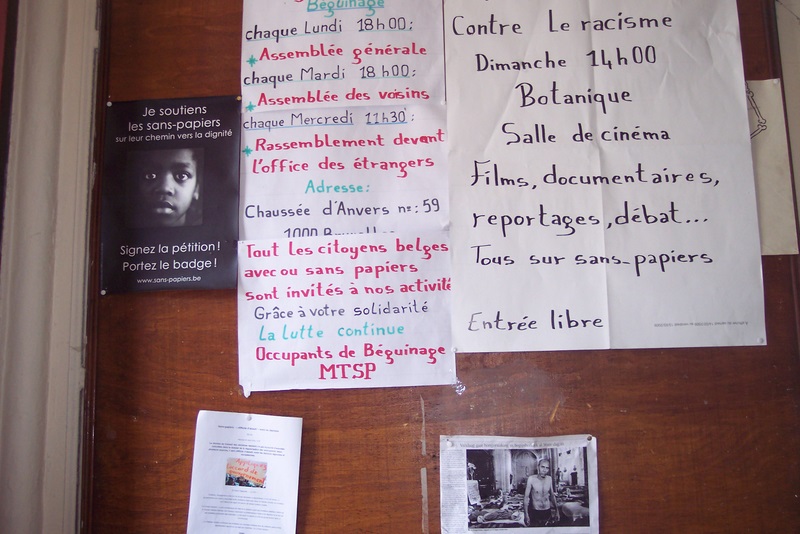 Je soutiens
les sans-papiers
sur leur chemin vers la dignité
Signez la pétition !
Portez le badge !
www.sans-papiers.be
Béguinage
chaque Lundi 18h00:
Assemblée générale
chaque Mardi 18h00:
Assemblée des voisins
chaque Mercredi 11h30:
Rassemblement devant
l'office des étrangers
Adresse:
Chaussée d'Anvers n=: 59
Tout les citoyens belges
avec ou sans papiers
sont invités à nos activité
Grâce à votre solidarité
La lutte continue
Occupants de Béguinage
MTSP
Contre Le racisme
Dimanche 14h00
Botanique
Salle de cinéma
Films, documentaires,
reportages, débat...
Tous sur sans-papiers
Entrée libre